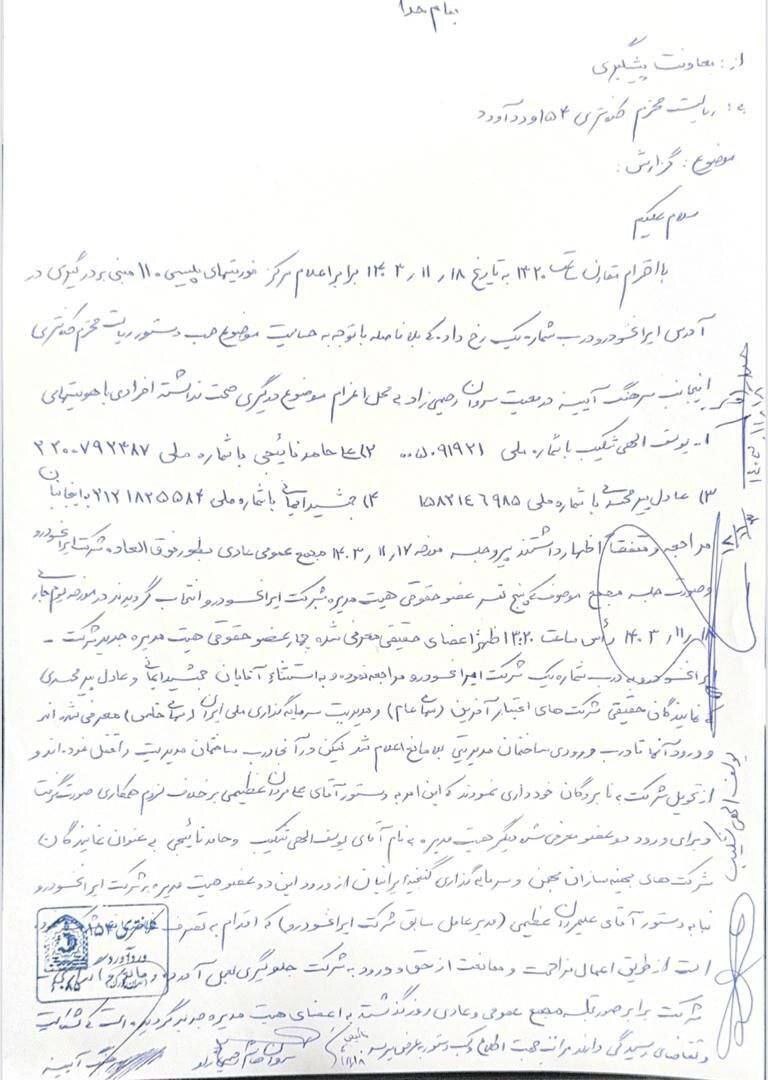 بنام خدا
از: معاونت پیشگیری
به: ریاست محترم کلانتری ۱۵۴ وردآورد
موضوع: گزارش:
سلام علیکم
با احترام مقارن ساعت ۱۳:۲۰ به تاریخ ۱۴۰۳/۱۱/۱۸ برابر اعلام مرکز فوریتهای پلیسی ۱۱۰ مبنی بر درگیری در
آدرس ایرانخودرو درب شماره یک رخ داده که بلافاصله با توجه به حساسیت موضوع حسب دستور ریاست محترم کلانتری
اینجانب سرهنگ آیینه در معیت سروان رحیمی راد به محل اعزام موضوع درگیری صحت نداشته افرادی با هویتهای
۱- یوسف الهی شکیب با شماره ملی ۰۰۵۰۹۱۹۲۱ ۲) حامد نائیجی با شماره ملی ۲۲۰۰۷۹۲۴۸۷
۳) عادل پیرمحمدی با شماره ملی ۱۵۸۲۱۴۶۹۸۵ ۴) جمشید ایمانی با شماره ملی ۲۱۲۱۸۲۵۵۸۴ به اینجانبان
مراجعه و متفقاً اظهار داشتند پیرو جلسه مورخه ۱۴۰۳/۱۱/۱۷ مجمع عمومی عادی بطور فوق العاده شرکت ایرانخودرو
و صورت جلسه مجمع موصوف که پنج نفر عضو حقوقی هیت مدیره شرکت ایرانخودرو انتخاب گردیدند در مورخه یوم جاری
۱۴۰۳/۱۱/۱۸ رأس ساعت ۱۳:۲۰ ظهر اعضای حقیقی معرفی شده چهار عضو حقوقی هیت مدیره جدید شرکت -
ایرانخودرو به درب شماره یک شرکت ایرانخودرو مراجعه نموده و به استثناء آقایان جمشید ایمانی و عادل پیرمحمدی
که نمایندگان حقیقی شرکت های اعتبار آفرین (سهامی عام) و مدیریت سرمایه گذاری ملی ایران (سهامی خاص) معرفی شده اند
و ورود آنها تا درب ورودی ساختمان مدیریتی بلامانع اعلام شد لیکن در آنجا درب ساختمان مدیریت را قفل نموده اند و
از تحویل شرکت به نامبردگان خودداری نمودند که این امر به دستور آقای علیمردان عظیمی بر خلاف لزوم همکاری صورت گرفت
و برای ورود دو عضو معرفی شده دیگر هیت مدیره به نام آقای یوسف الهی شکیب و حامد نائیجی به عنوان نمایندگان
شرکت های بهینه سازان بهمن و سرمایه گذاری گنجینه ایرانیان از ورود این دو عضو هیت مدیره به شرکت ایرانخودرو
بنا به دستور آقای علیمردان عظیمی (مدیرعامل سابق شرکت ایرانخودرو) که اقدام به تصرف
است از طریق اعمال مزاحمت و ممانعت از حق و ورود به شرکت جلوگیری بعمل آمده
شرکت برابر صورتجلسه مجمع عمومی و عادی روز گذشته به اعضای هیت مدیره جدید گردیده است که شکایت
و تقاضای رسیدگی دارند مراتب جهت اطلاع و کسب دستور بعرض میرسد
سرهنگ آیینه
یوسف الهی شکیب
کلانتری ۱۵۴
وردآورد